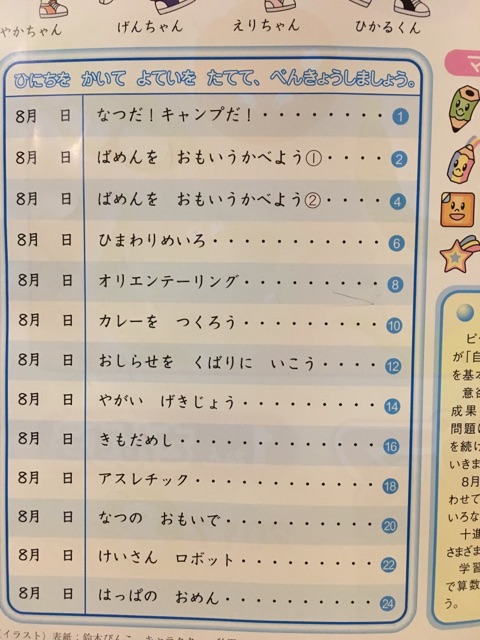 やかちゃん げんちゃん えりちゃん ひかるくん
ひにちを かいて よていを たてて、べんきょうしましょう。
8月 日 なつだ！キャンプだ！・・・・・・・・ 1
8月 日 ばめんを おもいうかべよう①・・・・ 2
8月 日 ばめんを おもいうかべよう②・・・・ 4
8月 日 ひまわりめいろ・・・・・・・・・・ 6
8月 日 オリエンテーリング・・・・・・・・ 8
8月 日 カレーを つくろう・・・・・・・・ 10
8月 日 おしらせを くばりに いこう・・・・ 12
8月 日 やがい げきじょう・・・・・・・・ 14
8月 日 きもだめし・・・・・・・・・・・・ 16
8月 日 アスレチック・・・・・・・・・・・ 18
8月 日 なつの おもいで・・・・・・・・・ 20
8月 日 けいさん ロボット・・・・・・・・ 22
8月 日 はっぱの おめん・・・・・・・・・ 24
マ
ピ
が「自
を基本
意欲
成果
問題に
を続け
いきま
8月
わせて
いろな
十進
さまざま
学習
で算数
う。
(イラスト) 表紙：鈴木びんこ